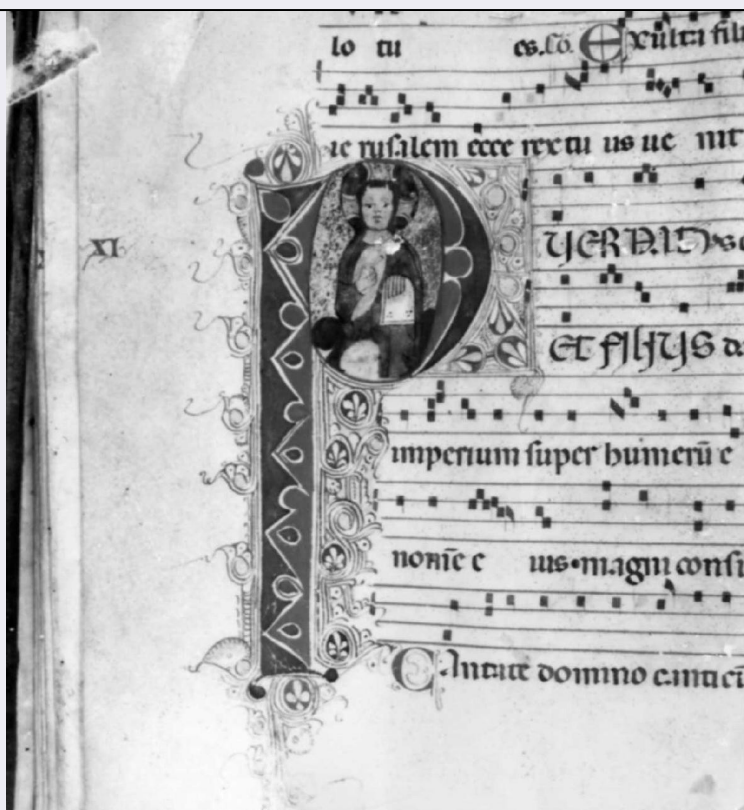 lo tu es. Co. Exulta fili
ie rusalem ecce rex tu us ue nit
XI
P UER NAT
ET FILIUS da
imperium super humerū e
nomē e ius•magni consi
Cantate domino canticū